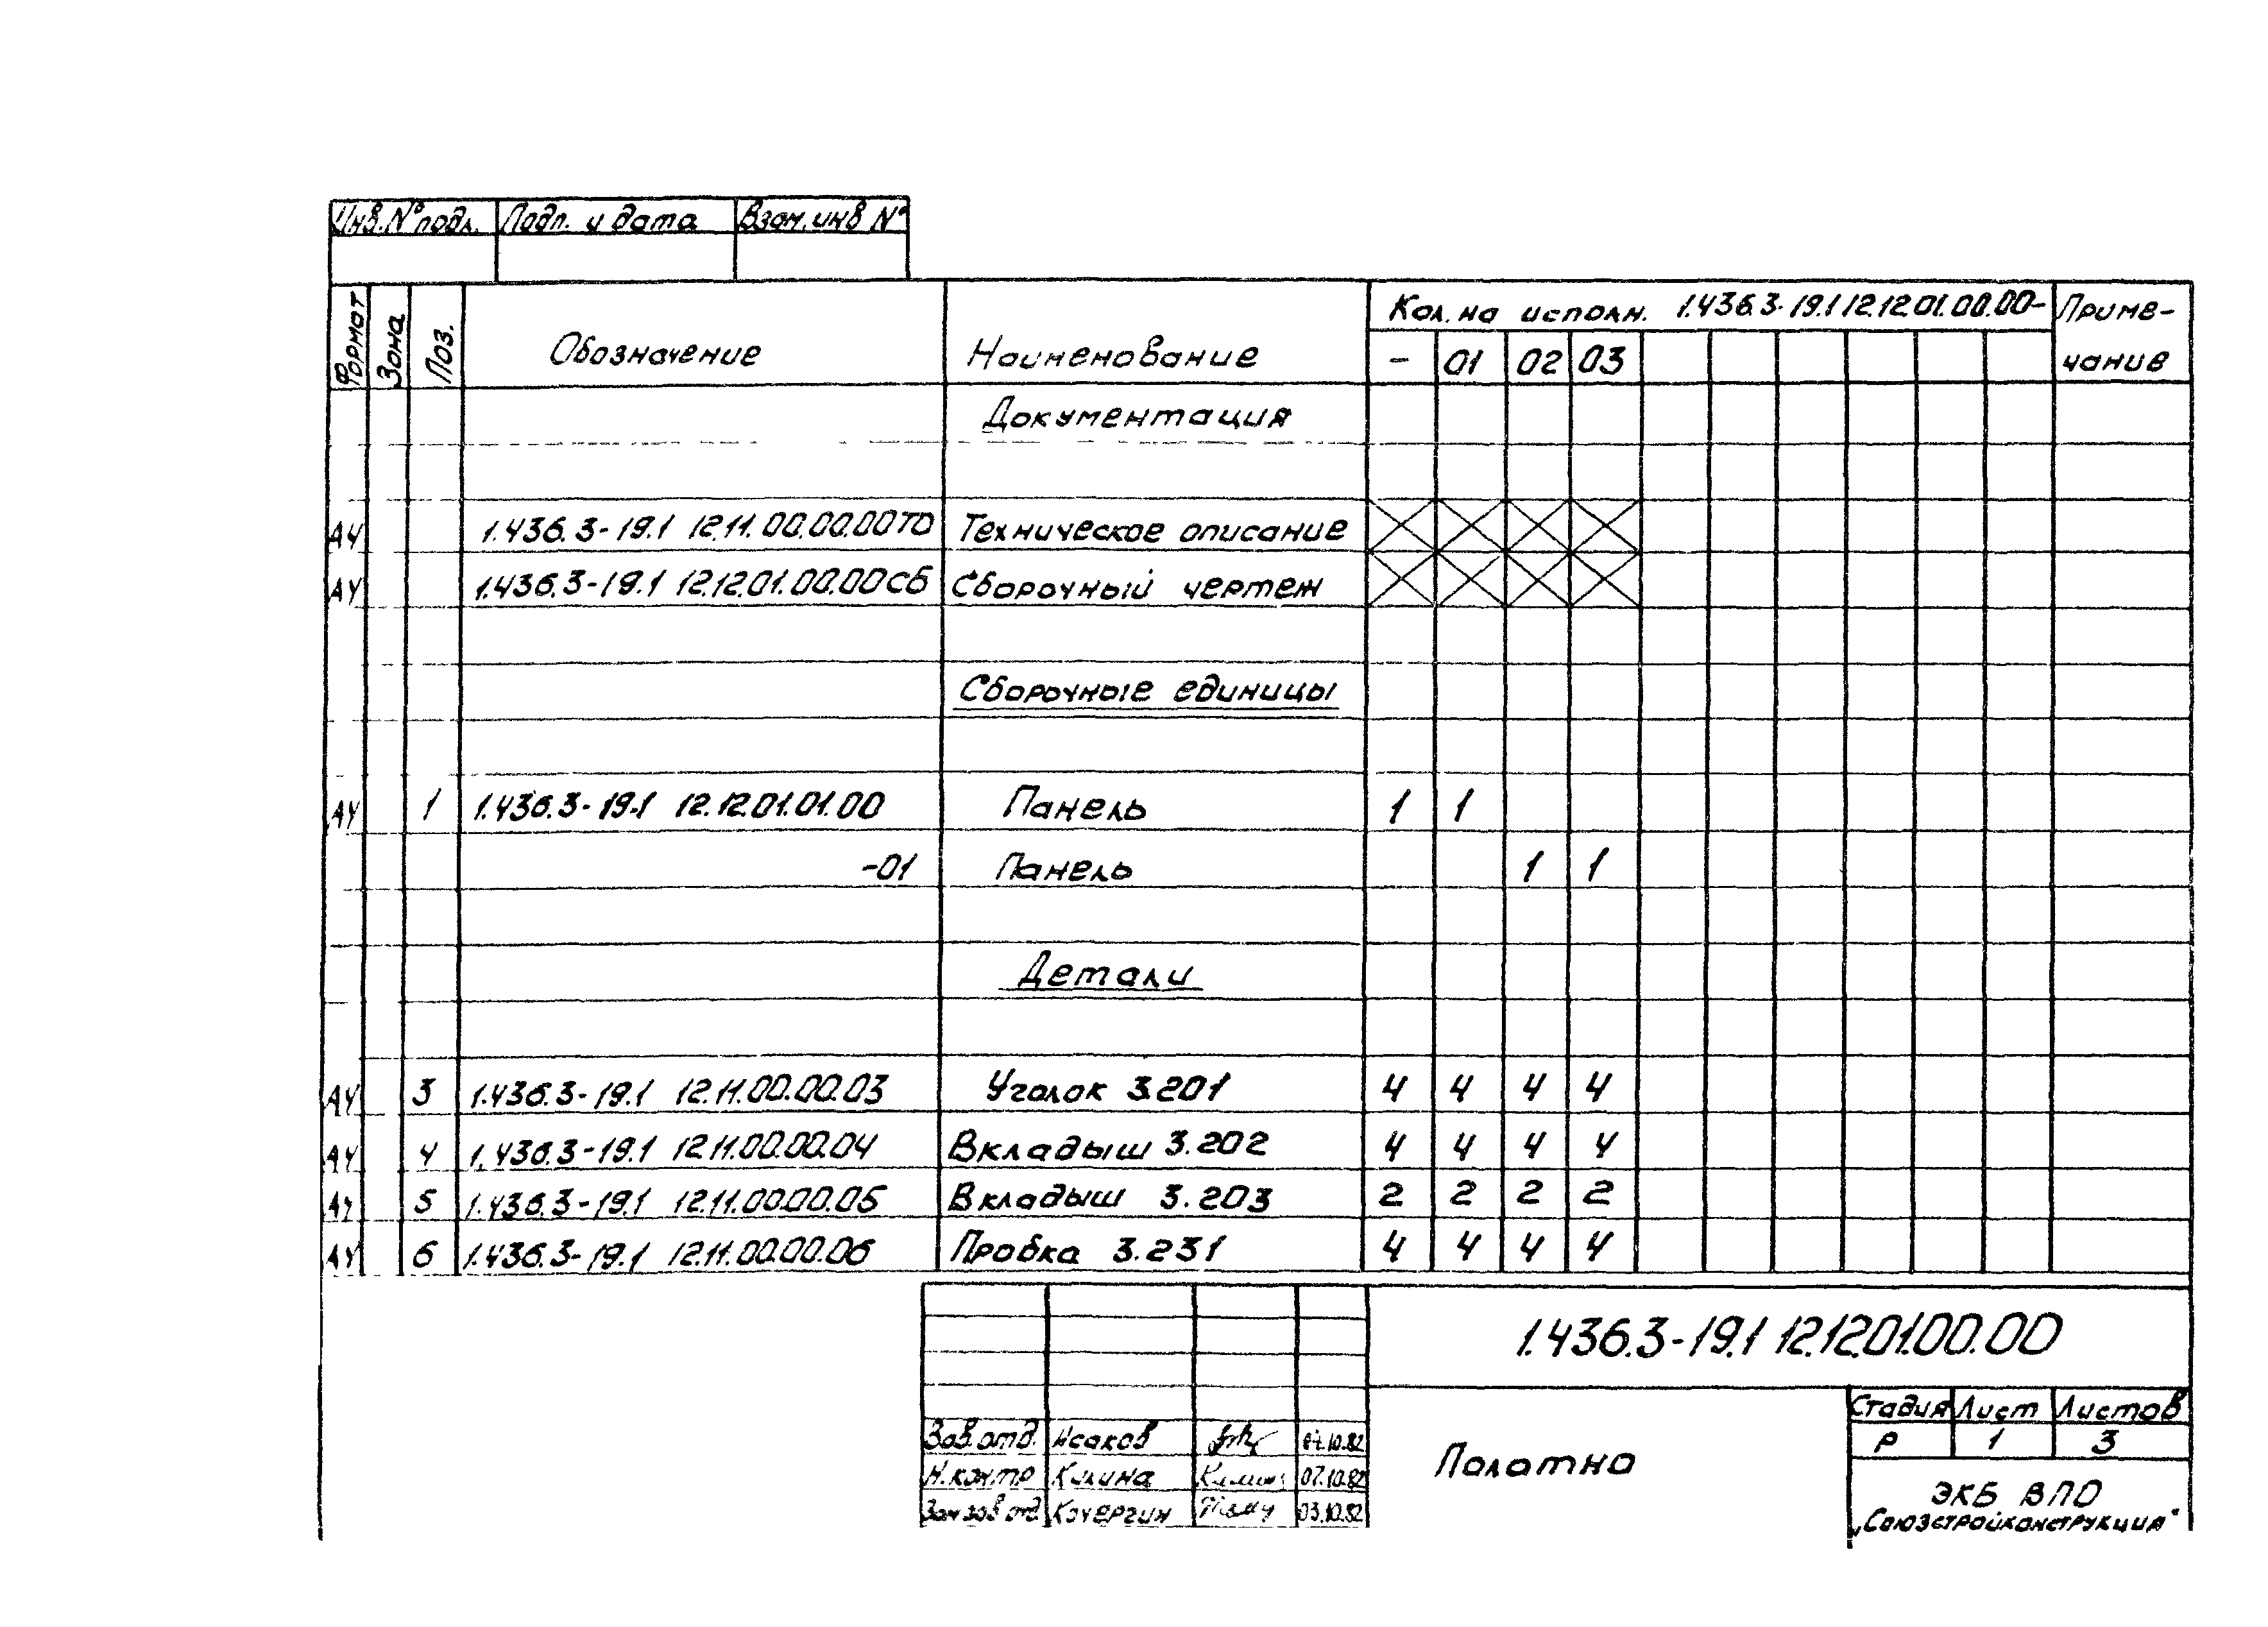 Инв.N°подл. Подп. и дата Взам.инв N°
Формат Зона Поз. Обозначение Наименование Кол. на исполн. 1.436.3-19.1 12.12.01.00.00- Приме-
чание
- 01 02 03
Документация
А4 1.436.3-19.1 12.11.00.00.00ТО Техническое описание
А4 1.436.3-19.1 12.12.01.00.00СБ Сборочный чертеж
Сборочные единицы
А4 1 1.436.3-19.1 12.12.01.01.00 Панель 1 1
-01 Панель 1 1
Детали
А4 3 1.436.3-19.1 12.11.00.00.03 Уголок 3.201 4 4 4 4
А4 4 1.436.3-19.1 12.11.00.00.04 Вкладыш 3.202 4 4 4 4
А4 5 1.436.3-19.1 12.11.00.00.05 Вкладыш 3.203 2 2 2 2
А4 6 1.436.3-19.1 12.11.00.00.06 Пробка 3.231 4 4 4 4
1.436.3-19.1 12.12.01.00.00
Полотно
Стадия Лист Листов
Р 1 3
Зав.отд. Исаков 04.10.82
Н.контр Килина 07.10.82
Зам зав отд. Кочергин 03.10.82
ЭКБ ВПО
„Союзстройконструкция"